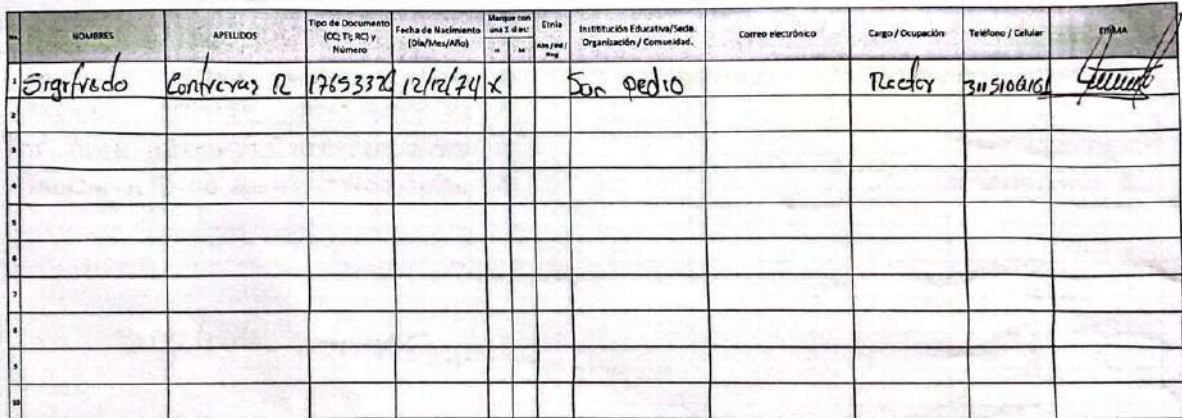 No. NOMBRES APELLIDOS Tipo de Documento (CC; TI; RC) y Número Fecha de Nacimiento (Día/Mes/Año) Marque con una X si es: H M Etnia Institución Educativa/Sede. Organización / Comunidad. Correo electrónico Cargo / Ocupación Teléfono / Celular FIRMA
1 Sigifredo Contreras R 12/12/74 X San pedro Rector
2
3
4
5
6
7
8
9
10